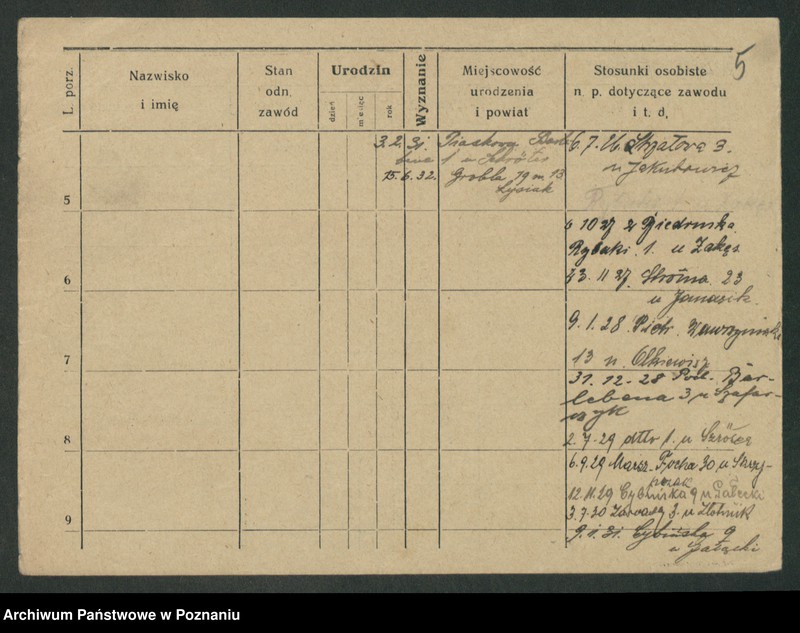 5
L. porz.
Nazwisko
i imię
Stan
odn.
zawód
Urodzin
dzień
miesięc
rok
Wyznanie
Miejscowość
urodzenia
i powiat
Stosunki osobiste
n. p. dotyczące zawodu
i t. d.
3.2.31. Piaskowa
1 u
15.6.32. Grobla 19 m 13
Łysiak
6.7.26 Strzałowa 3.
u Jakubowicz
5
6 10 27 z Biedruska
Rybaki 1. u
6
23. 11 27. Stroma 23
u Janasik.
9.1.28. Piotr Wawrzyniaka
13 u.
7
31. 12 - 28
lebena 3 u Szafar-
czyk
8
2.7.29 dtto 1. u
6.9.29 Marsz. Focha 30 u
12.11.29 Cybińska 9 u Gałecki
3.7.30 Zawady 3. u Złotnik
9
9.1.31. Cybińska 9
u Gałęcki
Archiwum Państwowe w Poznaniu